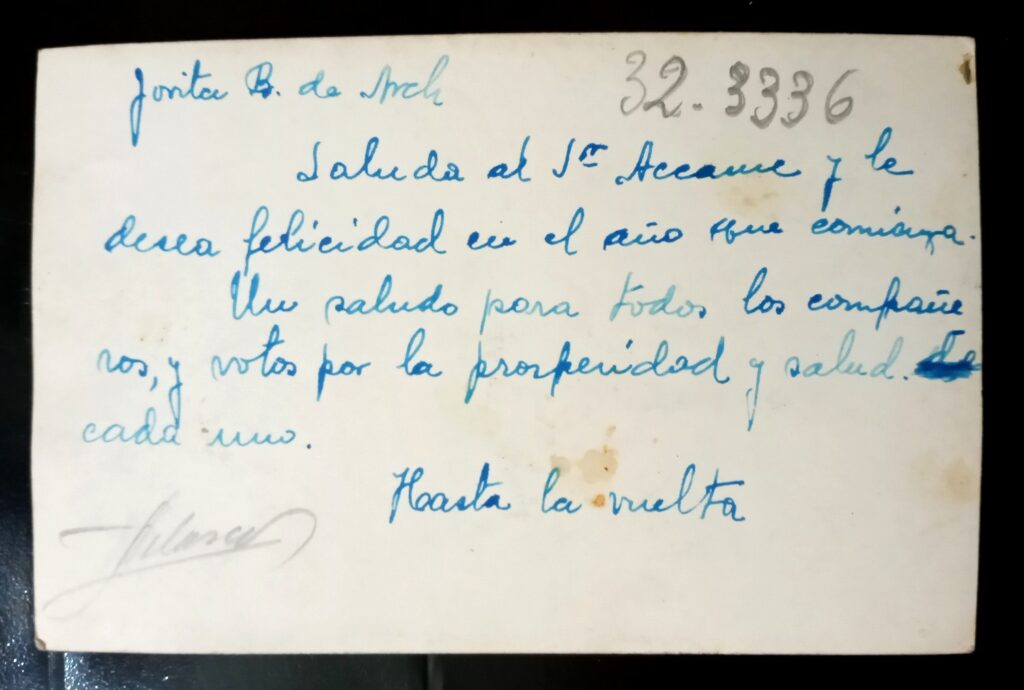 Jovita B. de Arch
32.3336
Saluda al Sr Accame y le
desea felicidad en el año que comienza.
Un saludo para todos los compañe
ros, y votos por la prosperidad y salud. de
cada uno.
Hasta la vuelta